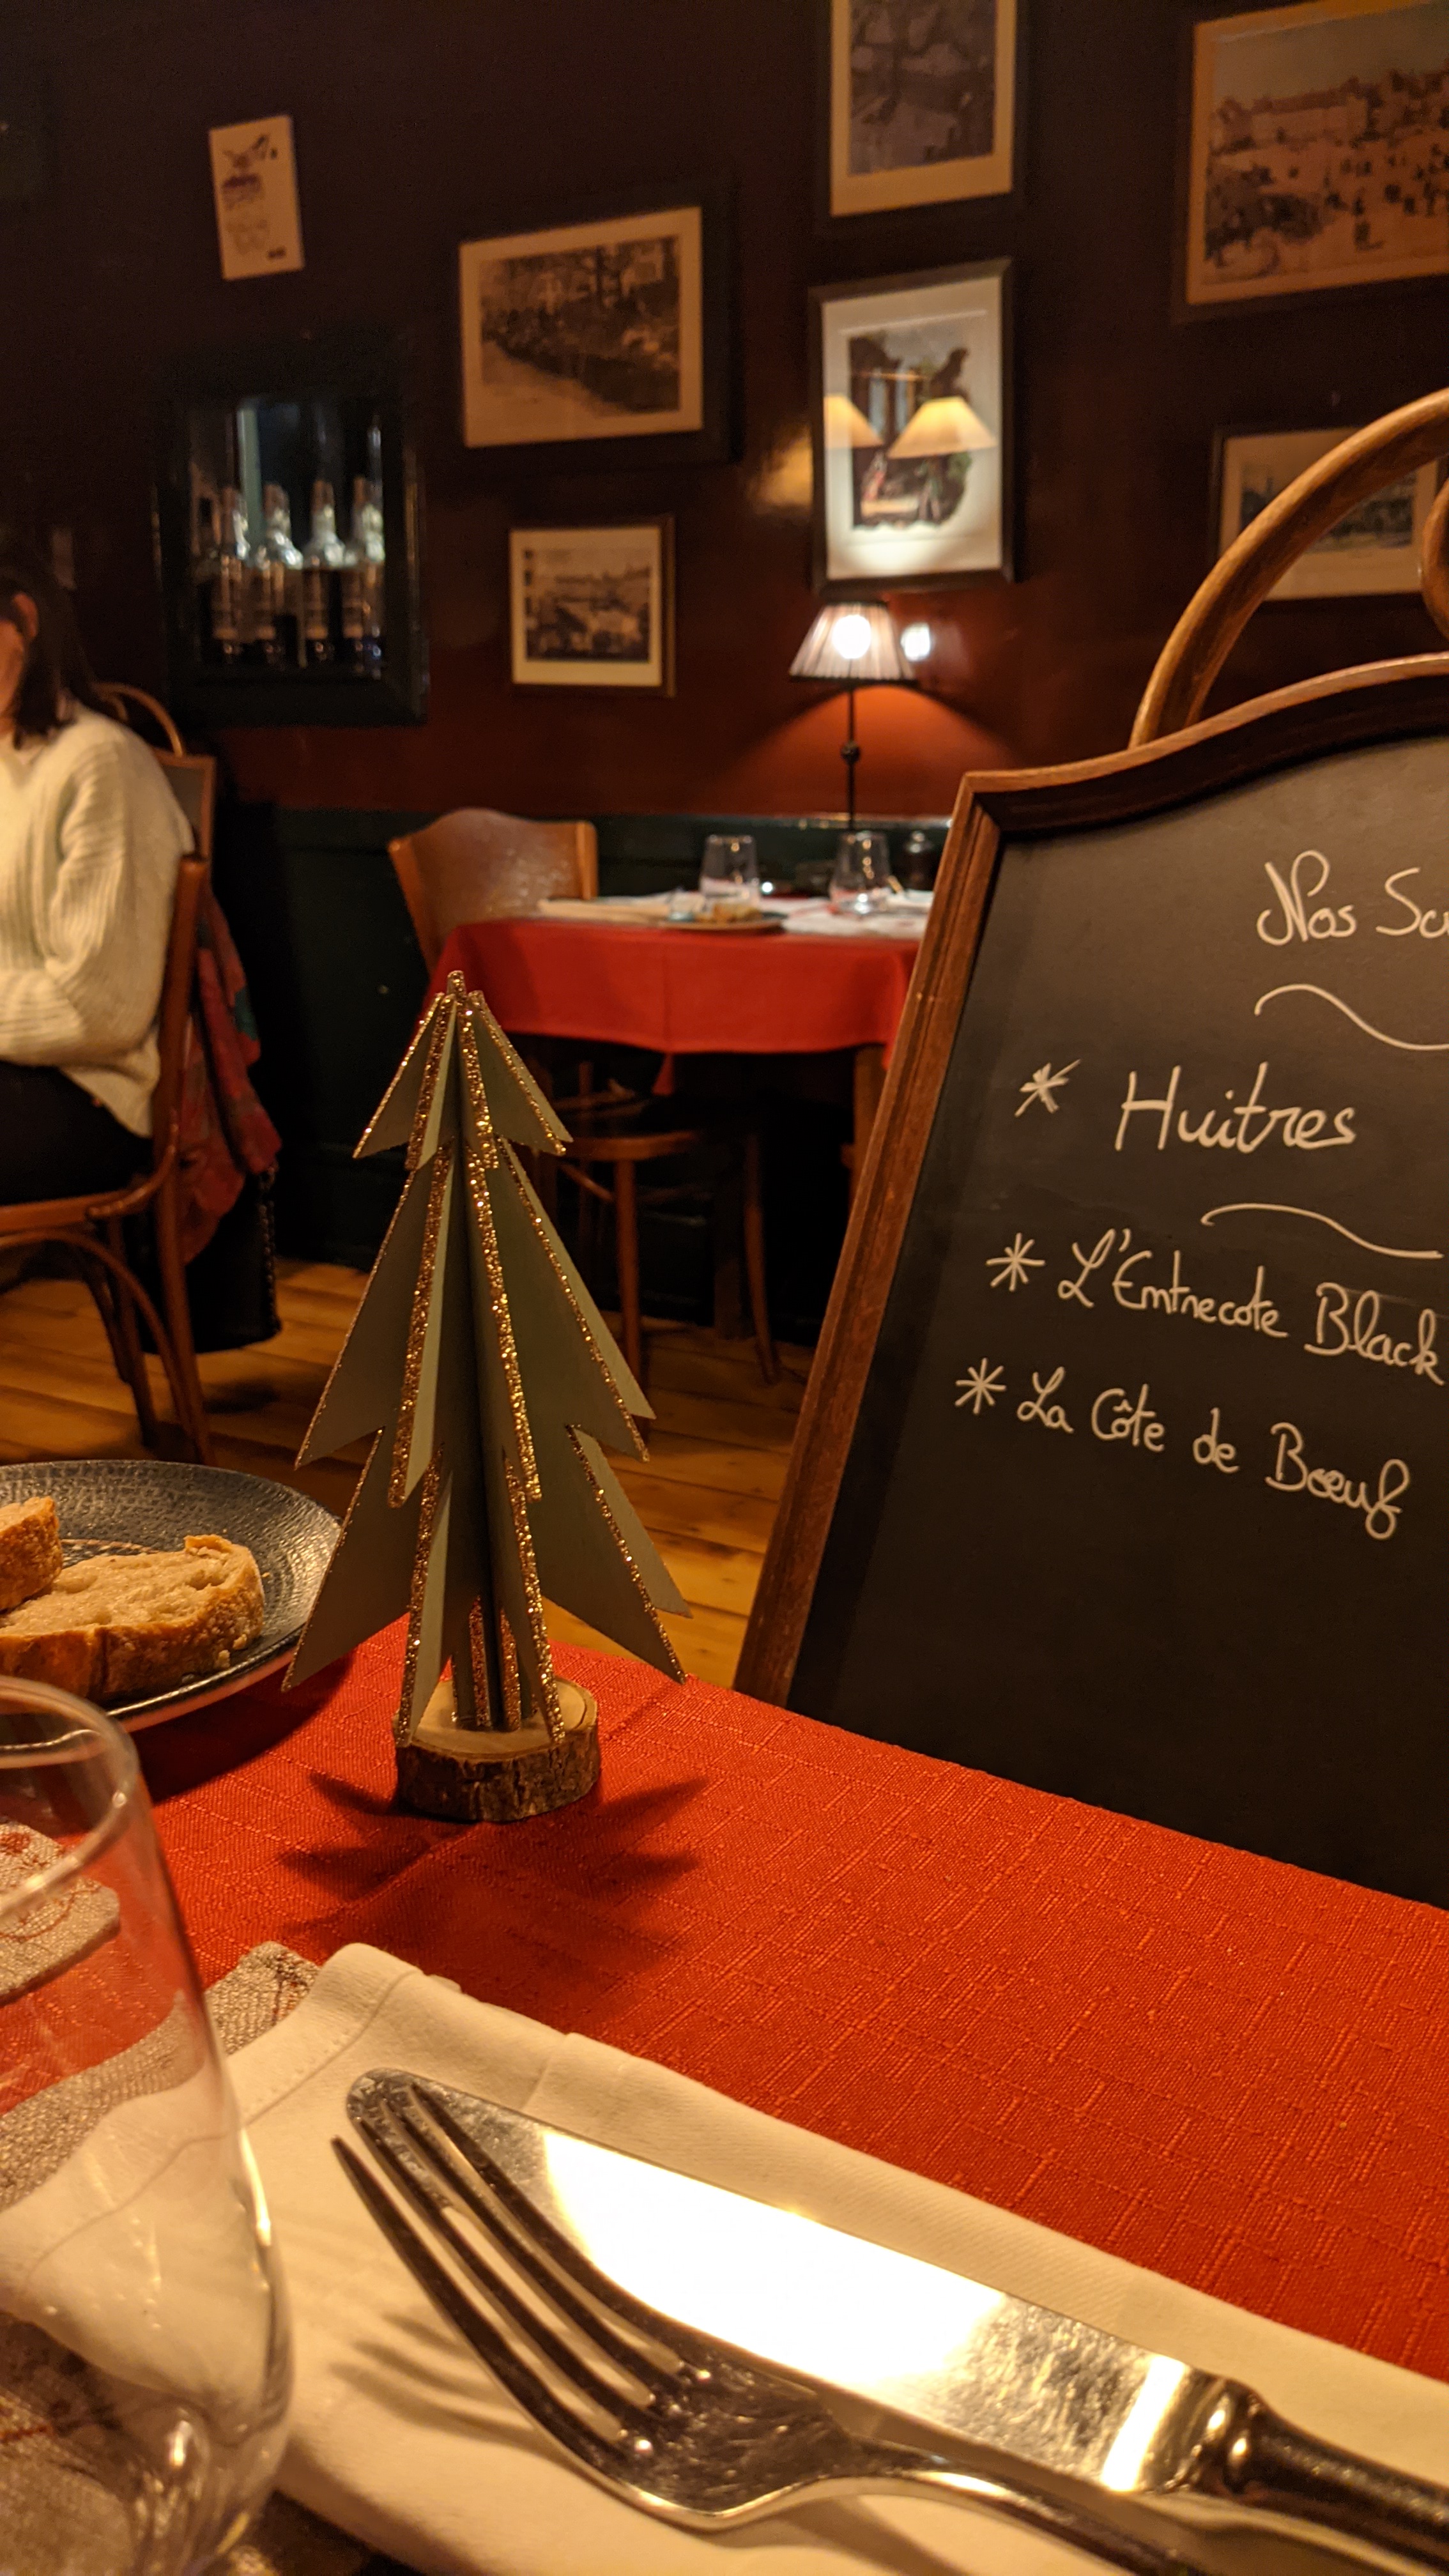 Nos
* Huitres
* L'Entrecote Black
* La Côte de Bœuf